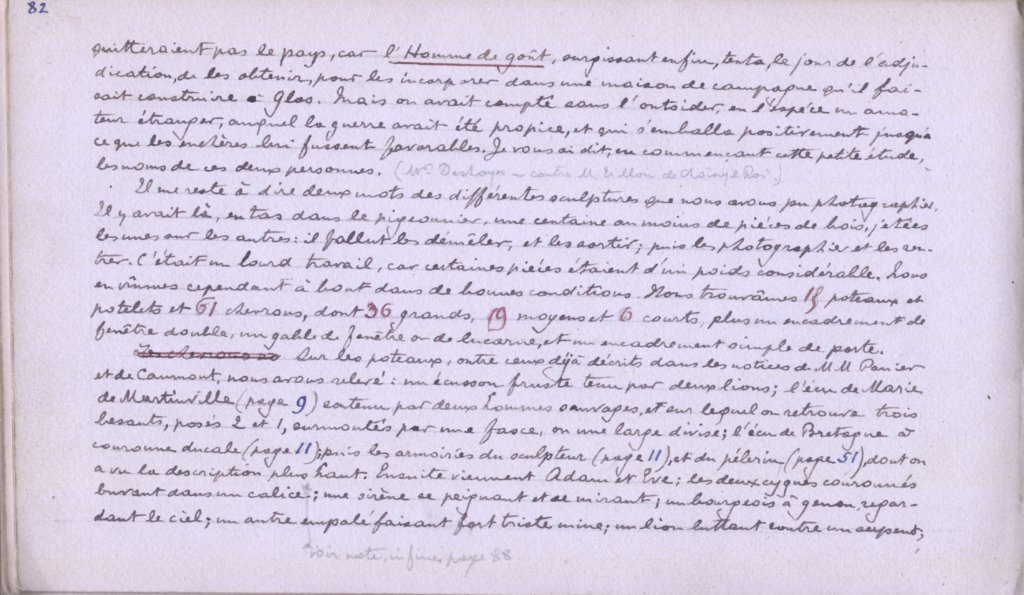 82
quitteraient pas le pays, car l'Homme de goût, surgissant enfin, tenta, le jour de l'adju-
dication, de les obtenir, pour les incorporer dans une maison de campagne qu'il fai-
sait construire à Glos. Mais on avait compté sans l'outsider, en l'espèce un ama-
teur étranger, auquel la guerre avait été propice, et qui s'emballa positivement jusqu'à
ce que les enchères lui fussent favorables. Je vous ai dit, en commençant cette petite étude,
les noms de ces deux personnes. (Mr. Deshayes contre M. de Choisy le Roi)
Il me reste à dire deux mots des différentes sculptures que nous avons pu photographier.
Il y avait là, en tas dans le pigeonnier, une centaine au moins de pièces de bois, jetées
les unes sur les autres: il fallut les démêler, et les sortir; puis les photographier et les ren-
trer. C'était un lourd travail, car certaines pièces étaient d'un poids considérable. Nous
en vînmes cependant à bout dans de bonnes conditions. Nous trouvâmes 15 poteaux et
potelets et 61 chevrons, dont 36 grands, 19 moyens et 6 courts, plus un encadrement de
fenêtre double, un gable de fenêtre ou de lucarne, et un encadrement simple de porte.
Sur les poteaux, outre ceux déjà décrits dans les notices de MM Panier
et de Caumont, nous avons relevé: un écusson fruste tenu par deux lions; l'écu de Marie
de Martinville (page 9) soutenu par deux hommes sauvages, et sur lequel on retrouve trois
besants, posés 2 et 1, surmontés par une fasce, ou une large divise; l'écu de Bretagne à
couronne ducale (page 11); puis les armoiries du sculpteur (page 11), et du pélerin (page 51), dont on
a vu la description plus haut. Ensuite viennent Adam et Eve; les deux cygnes couronnés
buvant dans un calice; une sirène se peignant et se mirant; un bourgeois à genou, regar-
dant le ciel; un autre empalé faisant fort triste mine; un lion luttant contre un serpent;
voir note, in fine, page 88